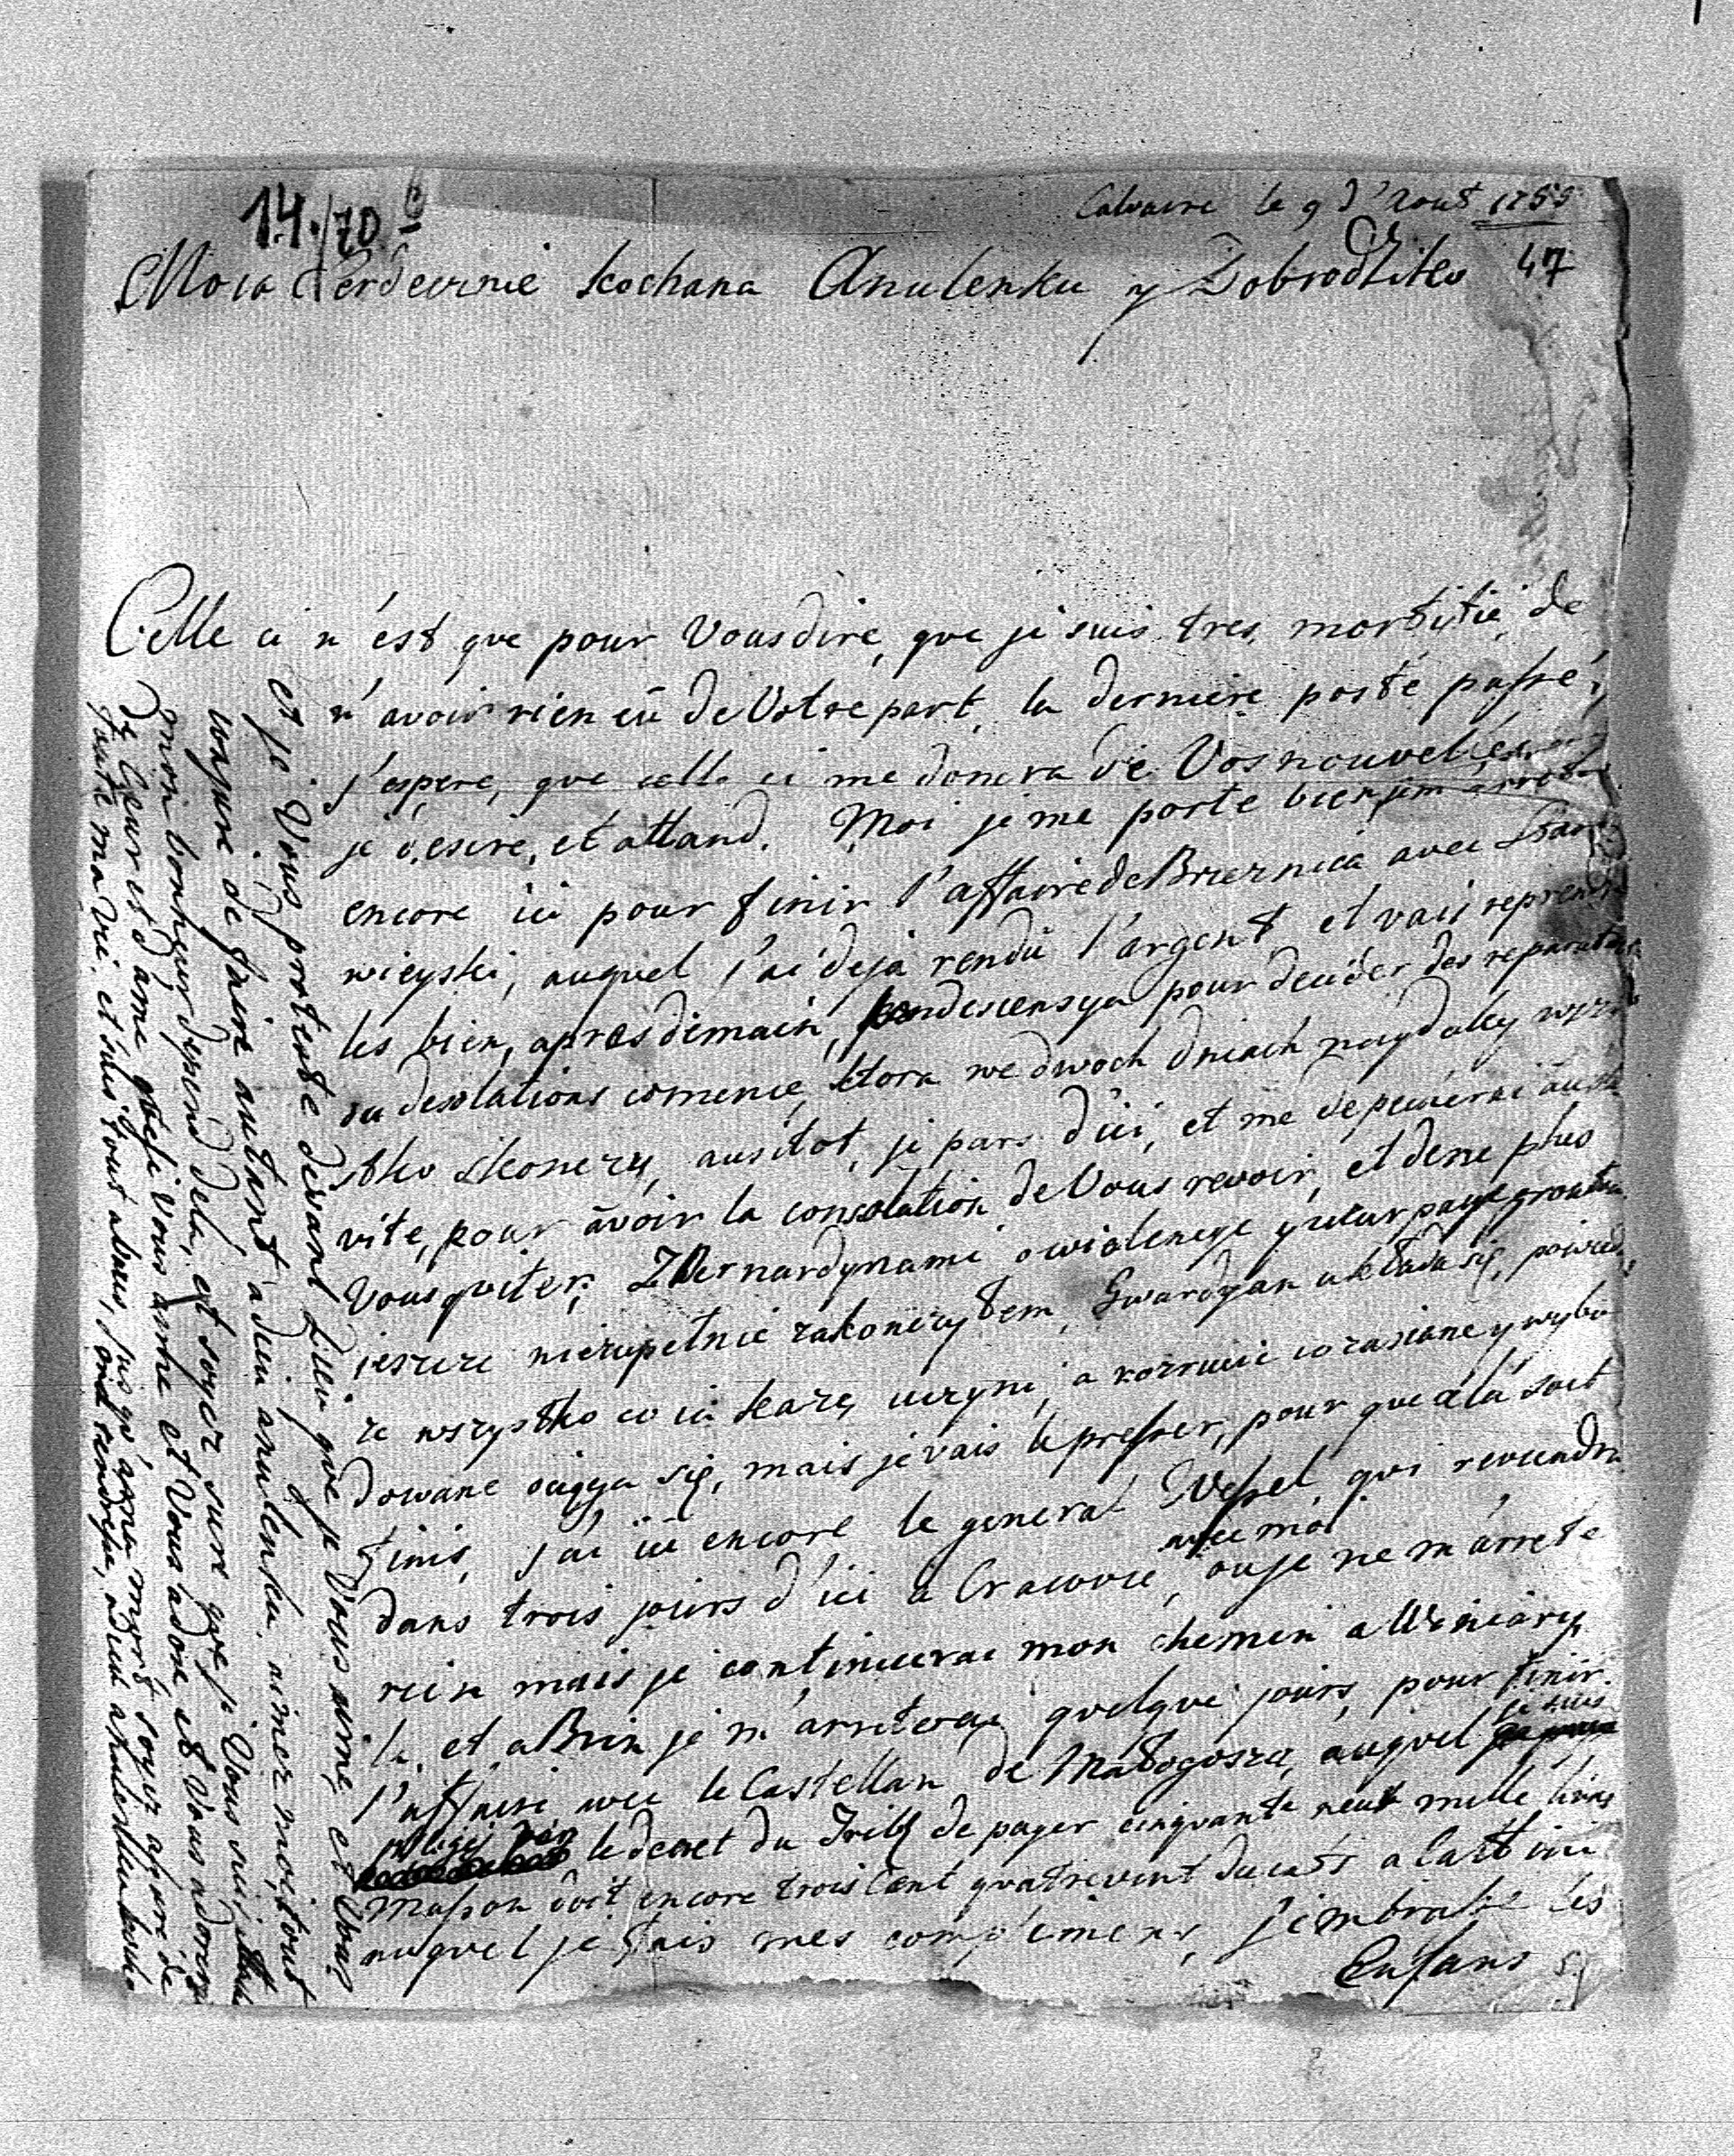 14./70 c
Calvaire le 9 d'Aout 1755
47
Moia Serdecznie kochana Anulenku y Dobrodziko
Celle ci n'ést que pour Vous dire, que je suis tres mortifié de
n'avoir rien eü de Votre part, la derniere poste passé,
j'espere, que celle ci me donera de Vos nouvelles
je desire, et attand. Moi je me porte bien, j'em arrete
encore ici pour finir l'affaire de Brzeznica avec
wieyski, auquel j'ai deja rendü l'argent et vais reprend
les bien, apres demain, kondescensya pour decider des reparations
ou desolations comence, ktora we dwoch dniach naydaley wszi
stko skonczy, ausitot, je pars d'ici, et me depecherai
vite, pour avoir la consolation de Vous revoir, et de ne plus
Vous quiter; Z Bernardynami o wiolencye y uzurpacye gruntu
ieszcze niezupełnie zakonczyłem, Gwardyan układa się, powied
ze wszystko co ia każę uczyni, a rozrucic co zasiane y wybu
dowane ociąga się, mais je vais le presser, pour que cela soit
finis, j'ai ici encore le general Wessel qui reviendra
dans trois jours d'ici a Cracovie avec moi, ou je ne m'arrete
rien mais je continuerai mon chemin a Winiary,
la, et a Brin je m'arreterai quelque jours, pour finir
l'affaire avec le Castellan de Małogoszcz, auquel je suis
obligé par le decret du Trib de payer cinquante neuf mille livres
Masson doit encore trois Cent quatrevint ducats a
auquel je fais mes complimens, j'embrasse les
Enfans
et je Vous proteste devant Dieu que je Vous aime, et Vous
conjure de faire autant adieu anulenku, aimez moi, tout
mon bonheur depend dela, et soyez sure que je Vous suis
de Cœur et d'ame que si Vous aime et Vous adore et Vous adorerai
toute ma vie. et suis tout a Vous, jus qu'a ma mort soyez assuré de
ma tendresse, adieu anulenku